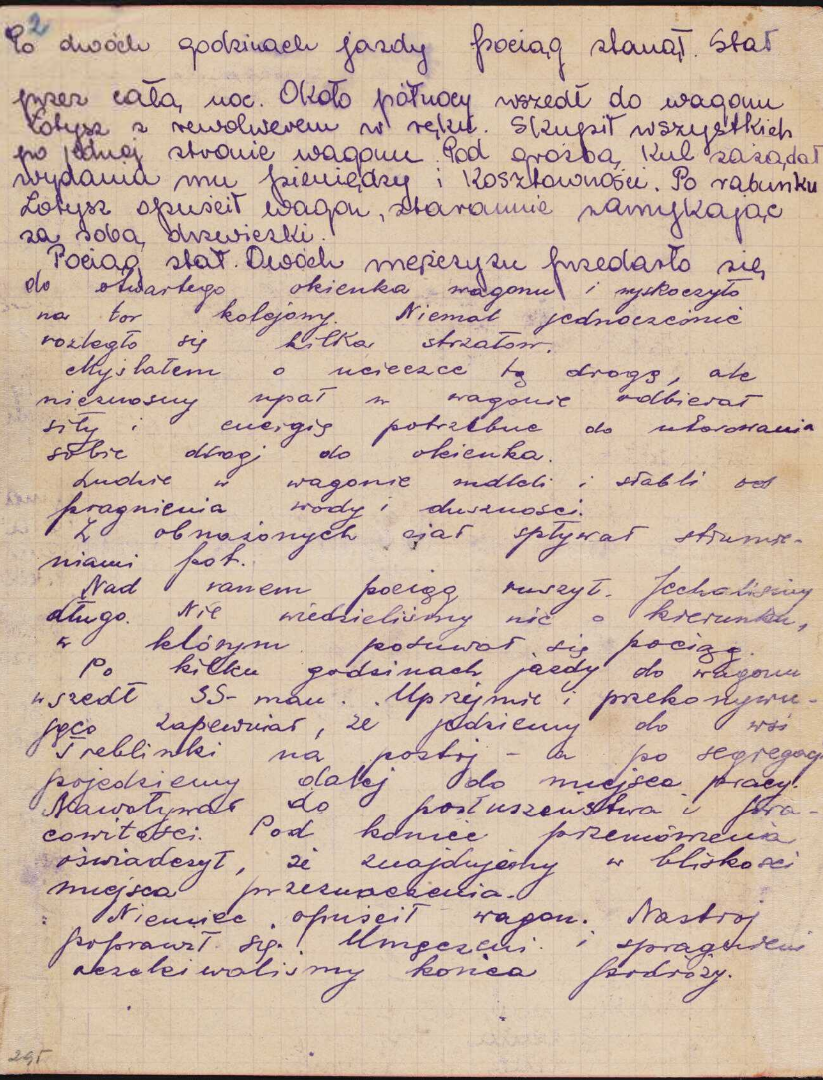 2
Po dwóch godzinach jazdy pociąg stanął. Stał
przez całą noc. Około północy wszedł do wagonu
Łotysz z rewolwerem w ręku. Skupił wszystkich
po jednej stronie wagonu. Pod groźbą kul zażądał
wydania mu pieniędzy i kosztowności. Po rabunku
Łotysz opuścił wagon, starannie zamykając
za sobą drzwiczki.
Pociąg stał. Dwóch mężczyzn przedarło się
do otwartego okienka wagonu i wyskoczyło
na tor kolejowy. Niemal jednocześnie
rozległo się kilka strzałów.
Myślałem o ucieczce tą drogą, ale
nieznośny upał w wagonie odbierał
siły i energię potrzebne do utorowania
sobie drogi do okienka.
Ludzie w wagonie mdleli i słabli od
pragnienia wody i duszności.
Z obnażonych ciał spływał strumie-
niami pot.
Nad ranem pociąg ruszył. Jechaliśmy
długo. Nie wiedzieliśmy nic o kierunku,
w którym posuwał się pociąg.
Po kilku godzinach jazdy do wagonu
wszedł SS-man. Uprzejmie i przekonywu-
jąco zapewniał, że jedziemy do wsi
Treblinki na postój - a po segregacji
pojedziemy dalej do miejsca pracy.
Nawoływał do posłuszeństwa i pra-
cowitości. Pod koniec przemówienia
oświadczył, że znajdujemy w bliskości
miejsca przeznaczenia.
Niemiec opuścił wagon. Nastrój
poprawił się. Umęczeni i spragnieni
oczekiwaliśmy końca podróży.